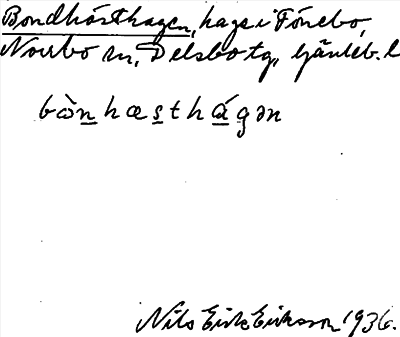 Bondhästhagen, hage i Fönebo,
Norrbo sn, Delsbo tg, Gävleb. l
bò̱nhæs̱thá̱gən
Nils Erik Eriksson 1936.